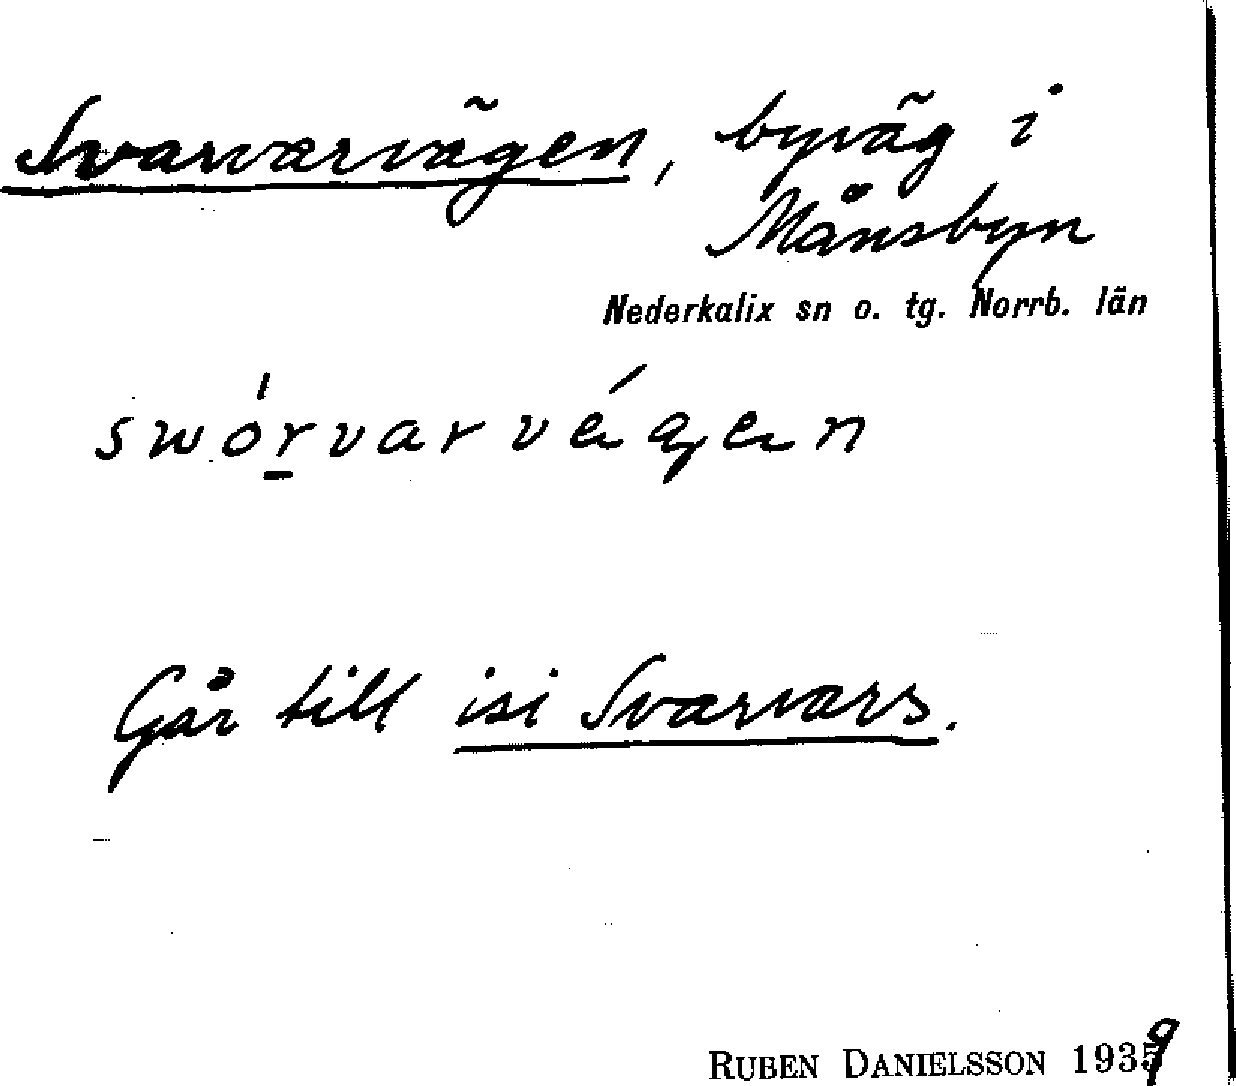 Svarvarvägen, byväg i
Månsbyn
Nederkalix sn o. tg. Norrb. län
Går till isi Svarvars.
RUBEN DANIELSSON 1939